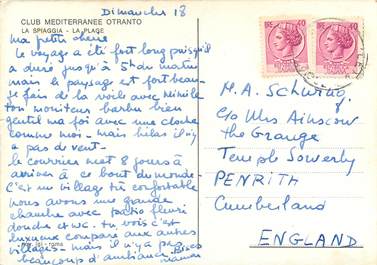 Dimanche 18
CLUB MEDITERRANEE OTRANTO
LA SPIAGGIA - LA PLAGE
ma petite cherie
Le voyage a été fort long puisqu'il
a duré jusqu'à 5h du matin
mais le paysage est fort beau-
je fais de la voile avec
ton moniteur barbu bien
gentil ma foi avec une cloche
comme moi - mais hélas il n'y
a pas de vent-
le courrier met 8 jours à
arriver à ce bout du monde-
C'est un village très confortable
nous avons une grande
chambre avec patio fleuri
douche et wc. tu vois c'est
luxueux comparé aux autres
villages - mais il n'y a pas
beaucoup d'ambiance Bises
maman
roma
40
40
M. A. Schwing
c/o Mrs Ainscow
the Grange
Temple Sowerby
PENRITH
Cumberland
ENGLAND